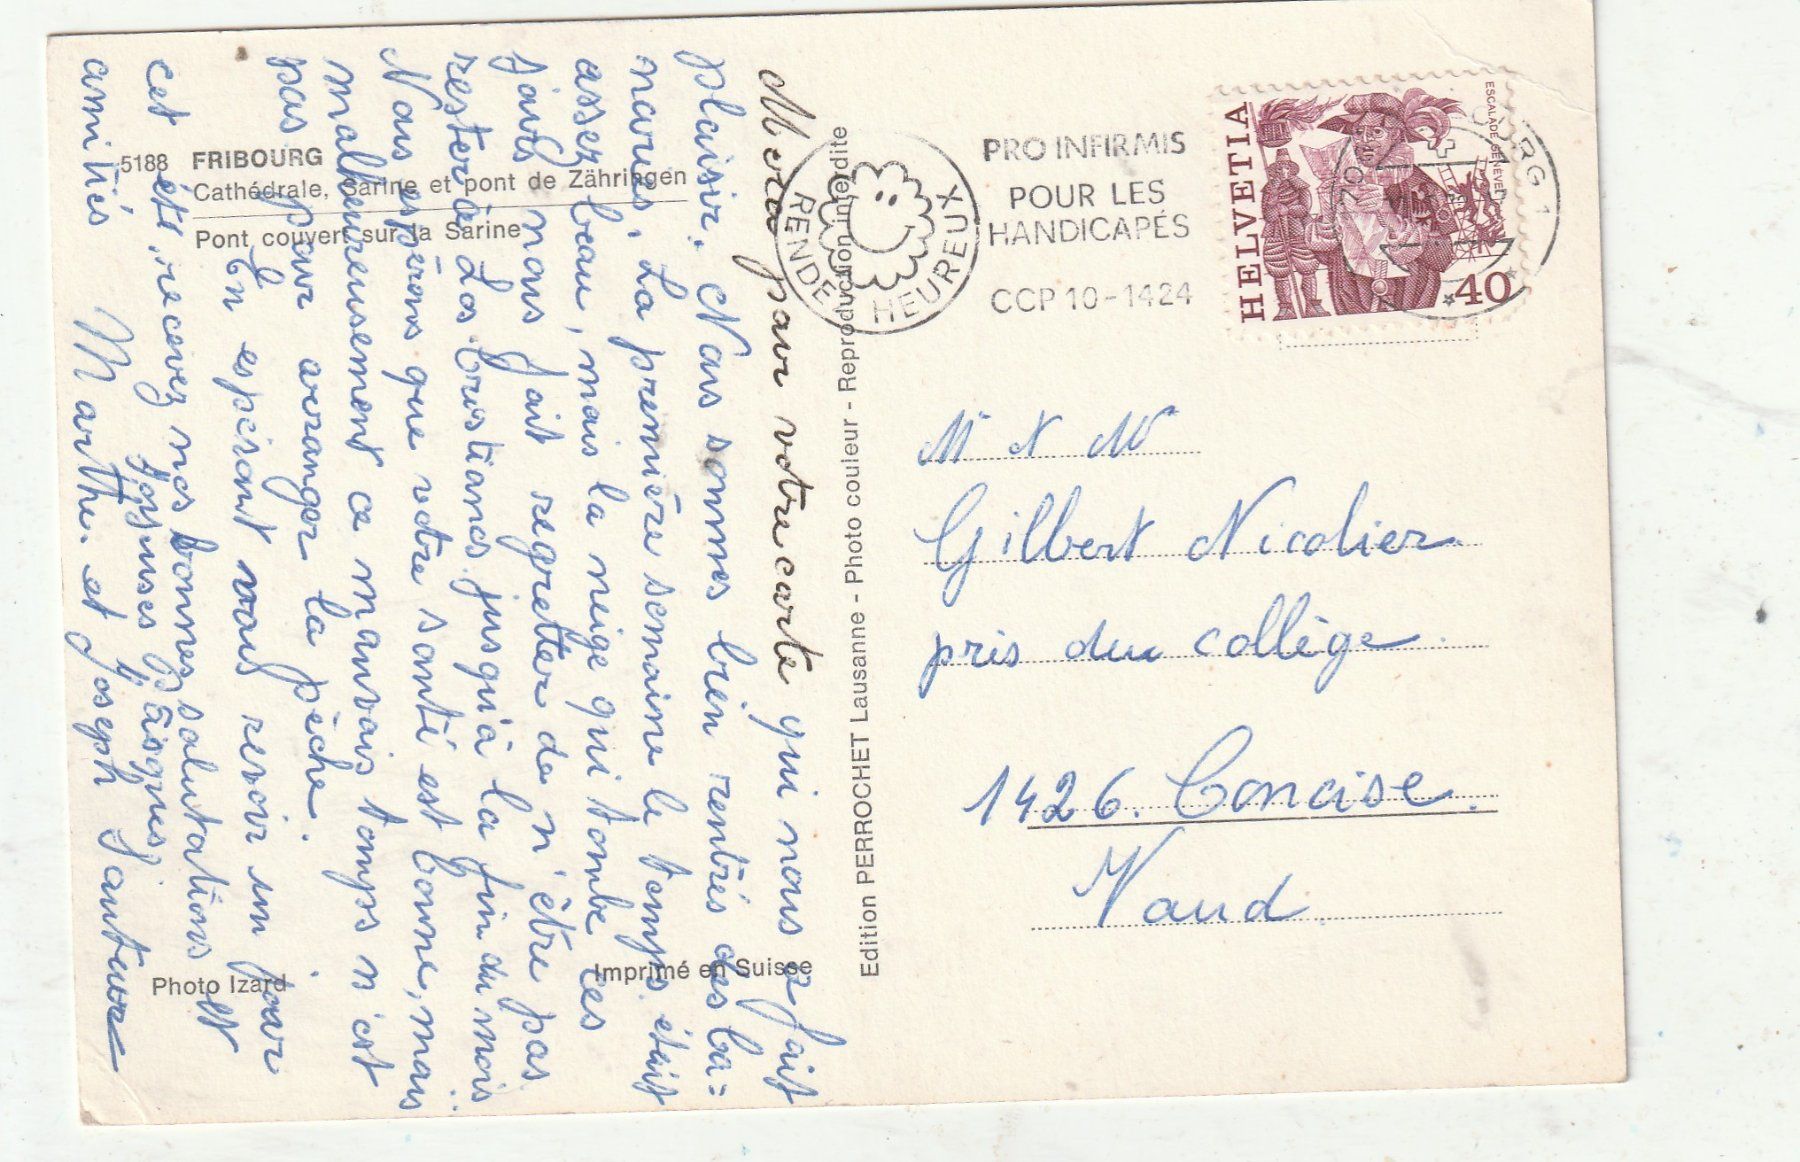 5188 FRIBOURG
Cathédrale, Sarine et pont de Zähringen
Pont couvert sur la Sarine
Merci pour votre carte qui nous a fait
plaisir. Nous sommes bien rentrés des ba=
nares. La première semaine le temps était
assez beau, mais la neige qui tombe ces
jours nous fait regretter de n'être pas
rester à Los Cristianos jusqu'à la fin du mois.
Nous espérons que votre santé est bonne, mais
malheureusement ce mauvais temps n'est
pas pour arranger la pêche.
En espérant vous revoir un jour
cet été, recevez nos bonnes salutations et
Joyeuses Pâques,
amitiés Marthe et Joseph Sauteur
Photo Izard
Imprimé en Suisse
Edition PERROCHET Lausanne - Photo couleur - Reproduction interdite
RENDE HEUREUX
PRO INFIRMIS
POUR LES
HANDICAPÉS
CCP 10-1424
HELVETIA
ESCALADE GENÈVE
40
OURG 1
M et M
Gilbert Nicolier
près du collège
1426. Concise.
Vaud